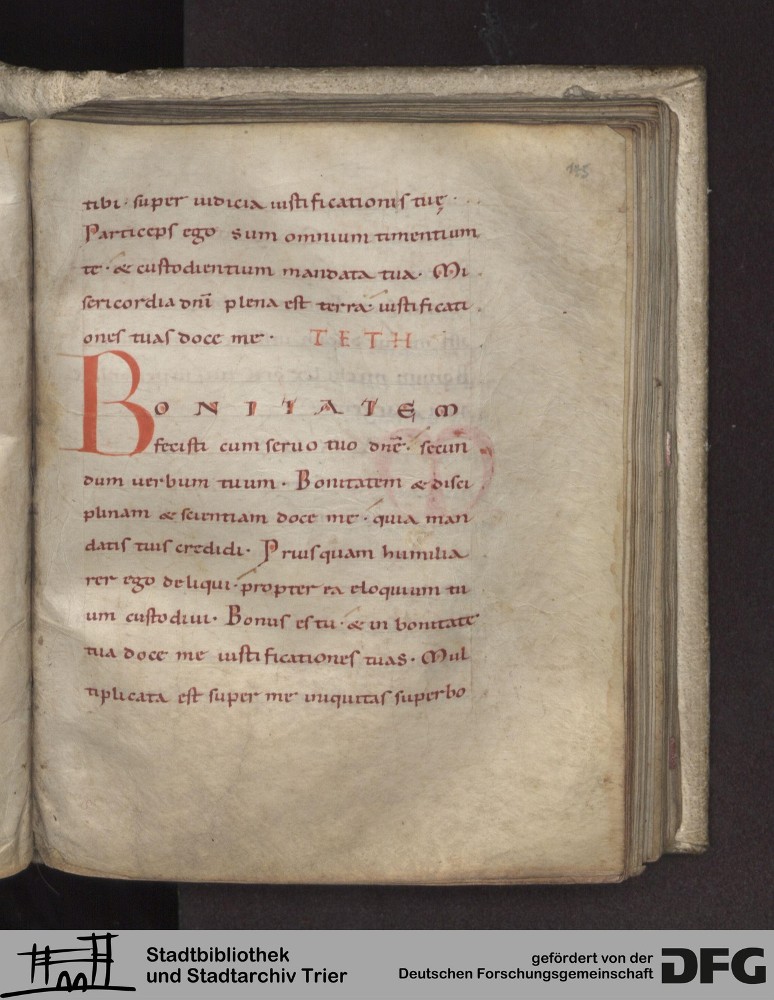 185
tibi · super iudicia iustificationis tuę ·
Particeps ego sum omnium timentium
te · & custodientium mandata tua · Mi
sericordia dnī plena est terra · iustificati
ones tuas doce me · TETH
BONITATEM
fecisti cum seruo tuo dnē · secun
dum uerbum tuum · Bonitatem & disci
plinam & scientiam doce me · quia man
datis tuis credidi · Priusquam humilia
rer ego deliqui · propter ea eloquium tu
um custodiui · Bonus es tu · & in bonitate
tua doce me iustificationes tuas · Mul
tiplicata est super me iniquitas superbo
Stadtbibliothek
und Stadtarchiv Trier
gefördert von der
Deutschen Forschungsgemeinschaft
DFG